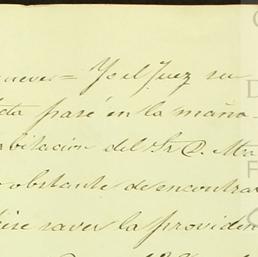 nueve = Yo el Juez su
pasé en la maña
bitación del Sr. D.
obstante de encontrar
saver la providen